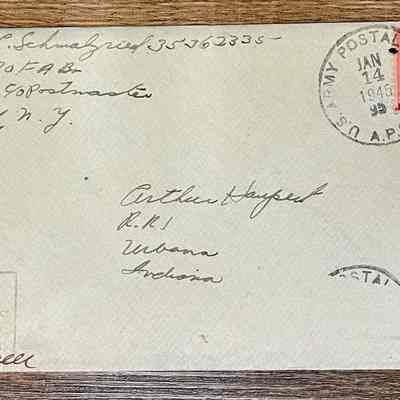 Schmalzried 35362335
F A Bn
% Postmaster
N. Y.
U.S. ARMY POSTAL
A.P.
JAN
14
1945
Arthur Haupert
R.R.1
Urbana
Indiana
OSTAL